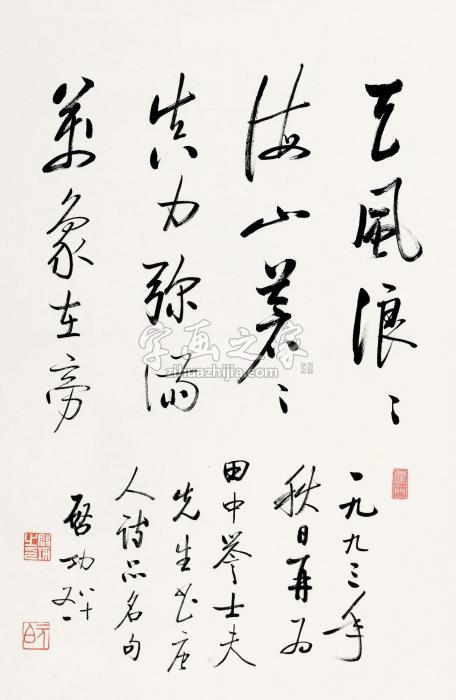 天風浪〻
海山蒼〻
真力弥滿
萬象在旁
一九九三年
秋日再为
田中誉士夫
先生书唐
人诗品名句
啓功八十又一
字画之家
zihuazhijia.com